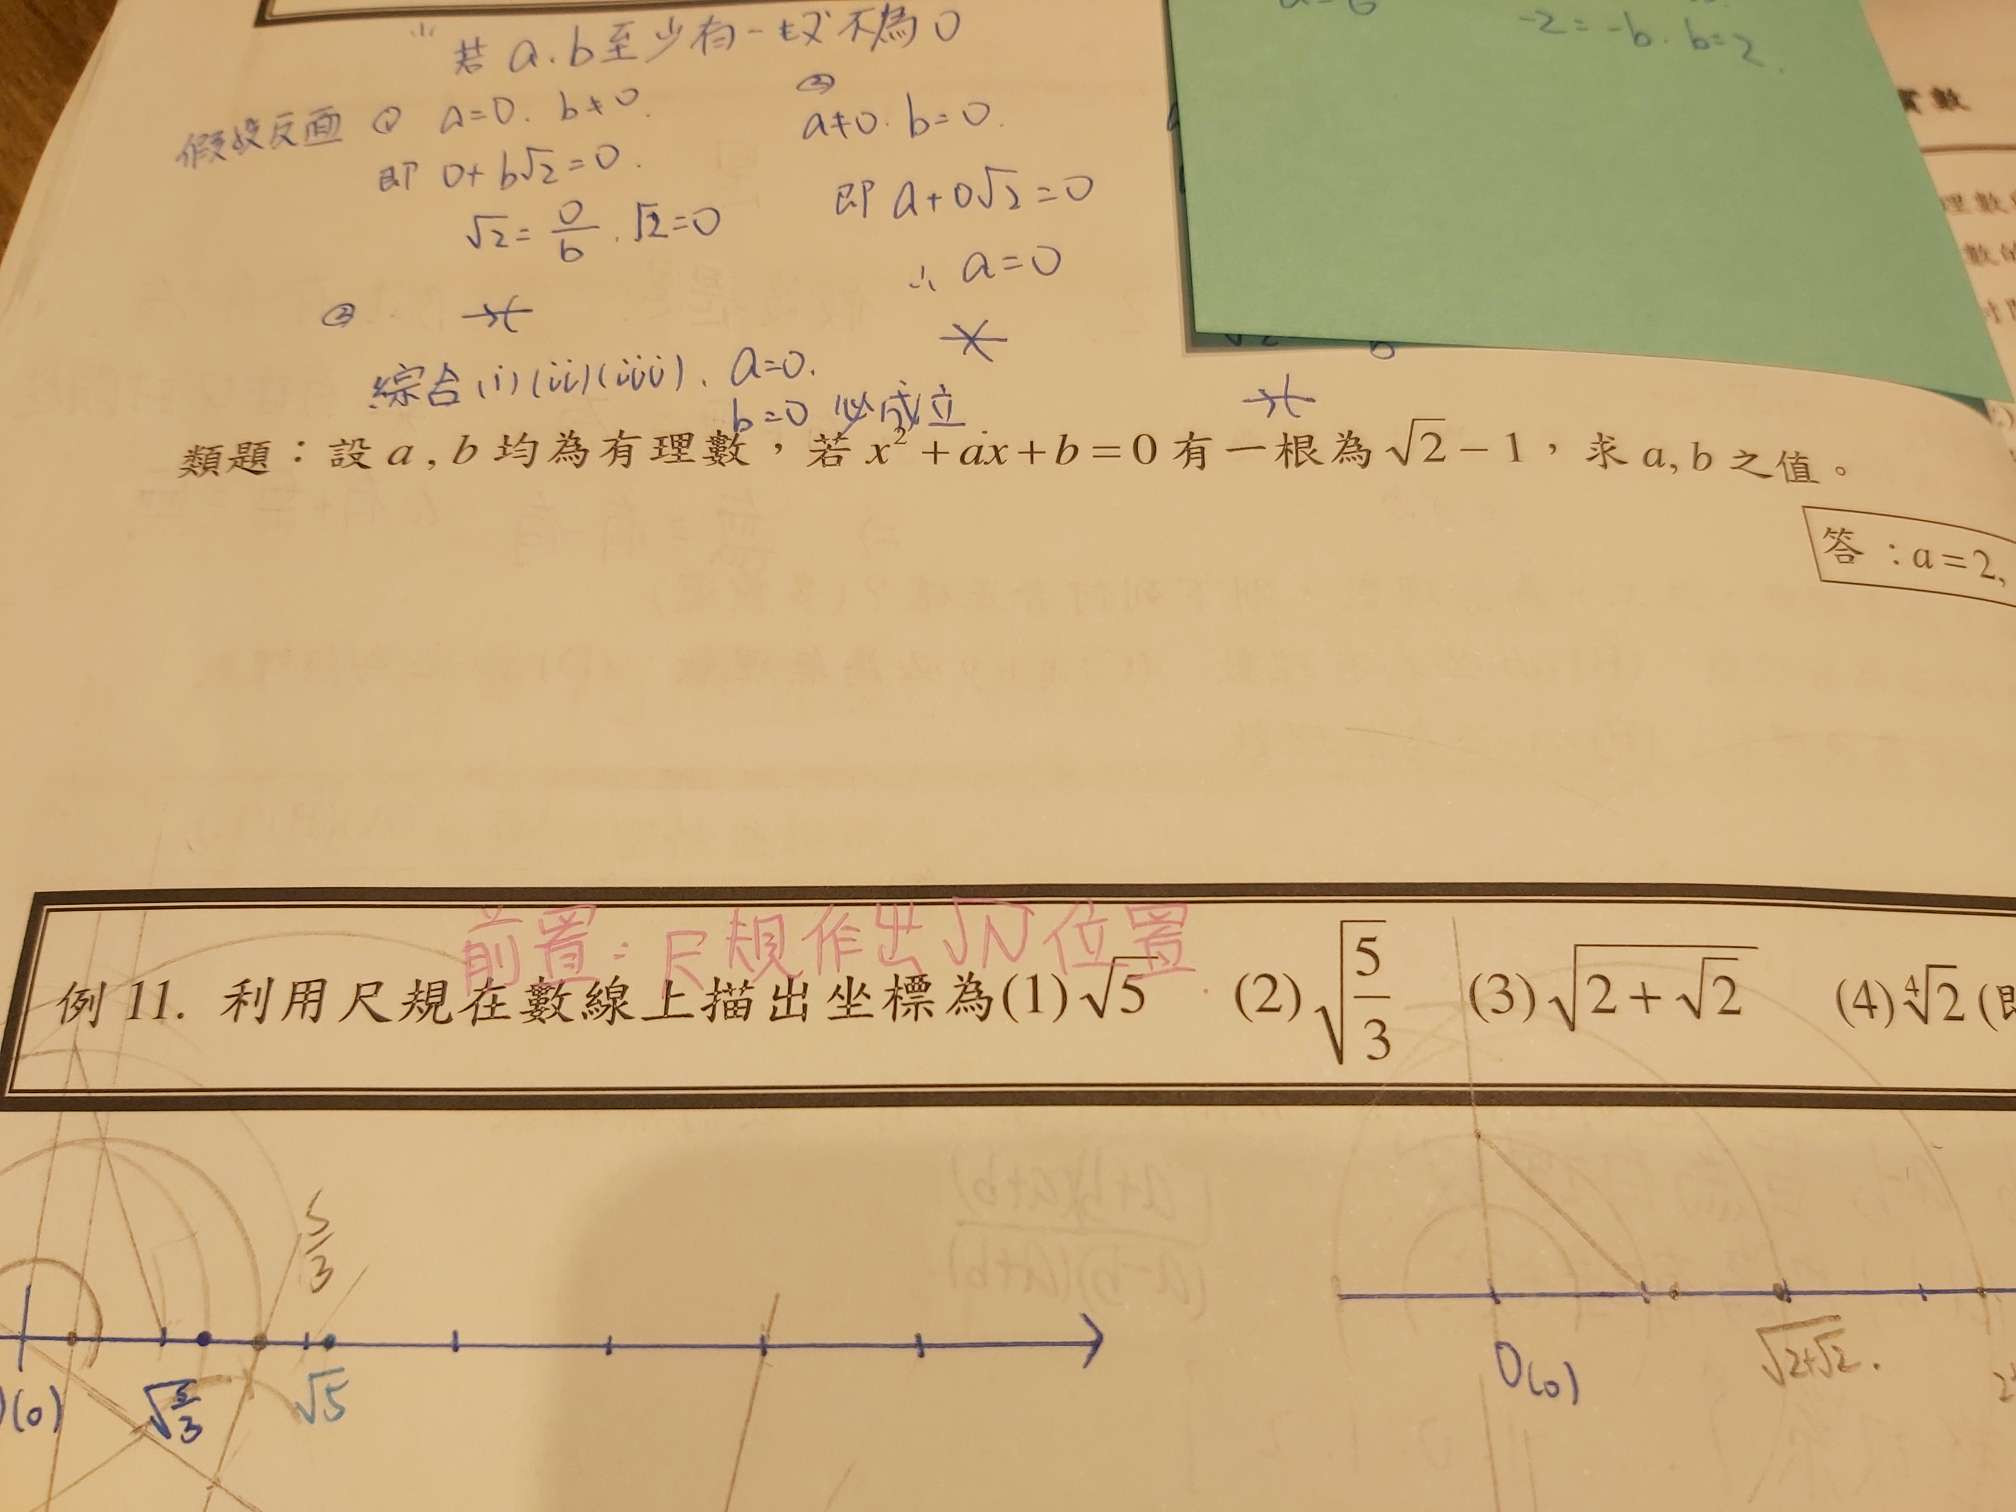 若 a.b至少有一世又不為0
假設反面 ① a=0. b≠0.
即 0+b√2=0.
√2=0/b . √2=0
②
a≠0. b=0.
即 a+0√2=0
∴ a=0
-2=-b. b=2.
實數
綜合(i)(ii)(iii). a=0.
b=0 必成立
類題:設 a , b 均為有理數,若 x² + ax + b = 0 有一根為 √2 − 1,求 a, b 之值。
答:a=2,
前置:尺規作出√N位置.
例 11. 利用尺規在數線上描出坐標為(1)√5 (2)√(5/3) (3)√(2+√2) (4)⁴√2 (即
5/3
(0) √(5/3) √5
O(0) √(2+√2).